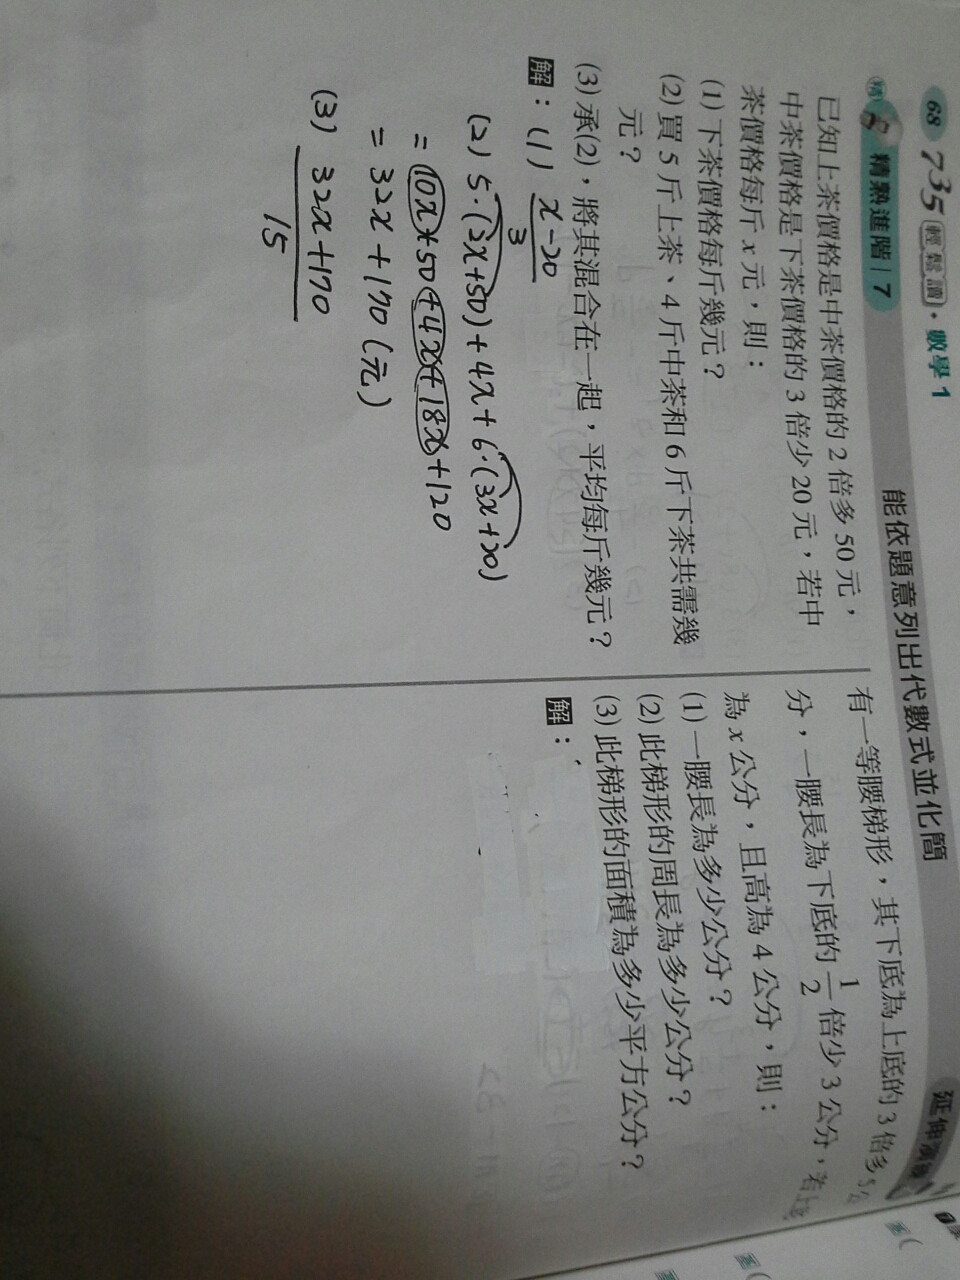 68 735 輕鬆讀・數學1
精熟進階 7 能依題意列出代數式並化簡
已知上茶價格是中茶價格的 2 倍多 50 元，
中茶價格是下茶價格的 3 倍少 20 元，若中
茶價格每斤 x 元，則：
(1) 下茶價格每斤幾元？
(2) 買 5 斤上茶、4 斤中茶和 6 斤下茶共需幾
元？
(3) 承(2)，將其混合在一起，平均每斤幾元？
解：(1) x-20
3
(2) 5·(2x+50)+4x+6·(3x+20)
= 10x+50+4x+18x+120
= 32x+170 (元)
(3) 32x+170
15
延伸演練
有一等腰梯形，其下底為上底的 3 倍多 5 公
分，一腰長為下底的 1/2 倍少 3 公分，若上底
為 x 公分，且高為 4 公分，則：
(1) 一腰長為多少公分？
(2) 此梯形的周長為多少公分？
(3) 此梯形的面積為多少平方公分？
解：